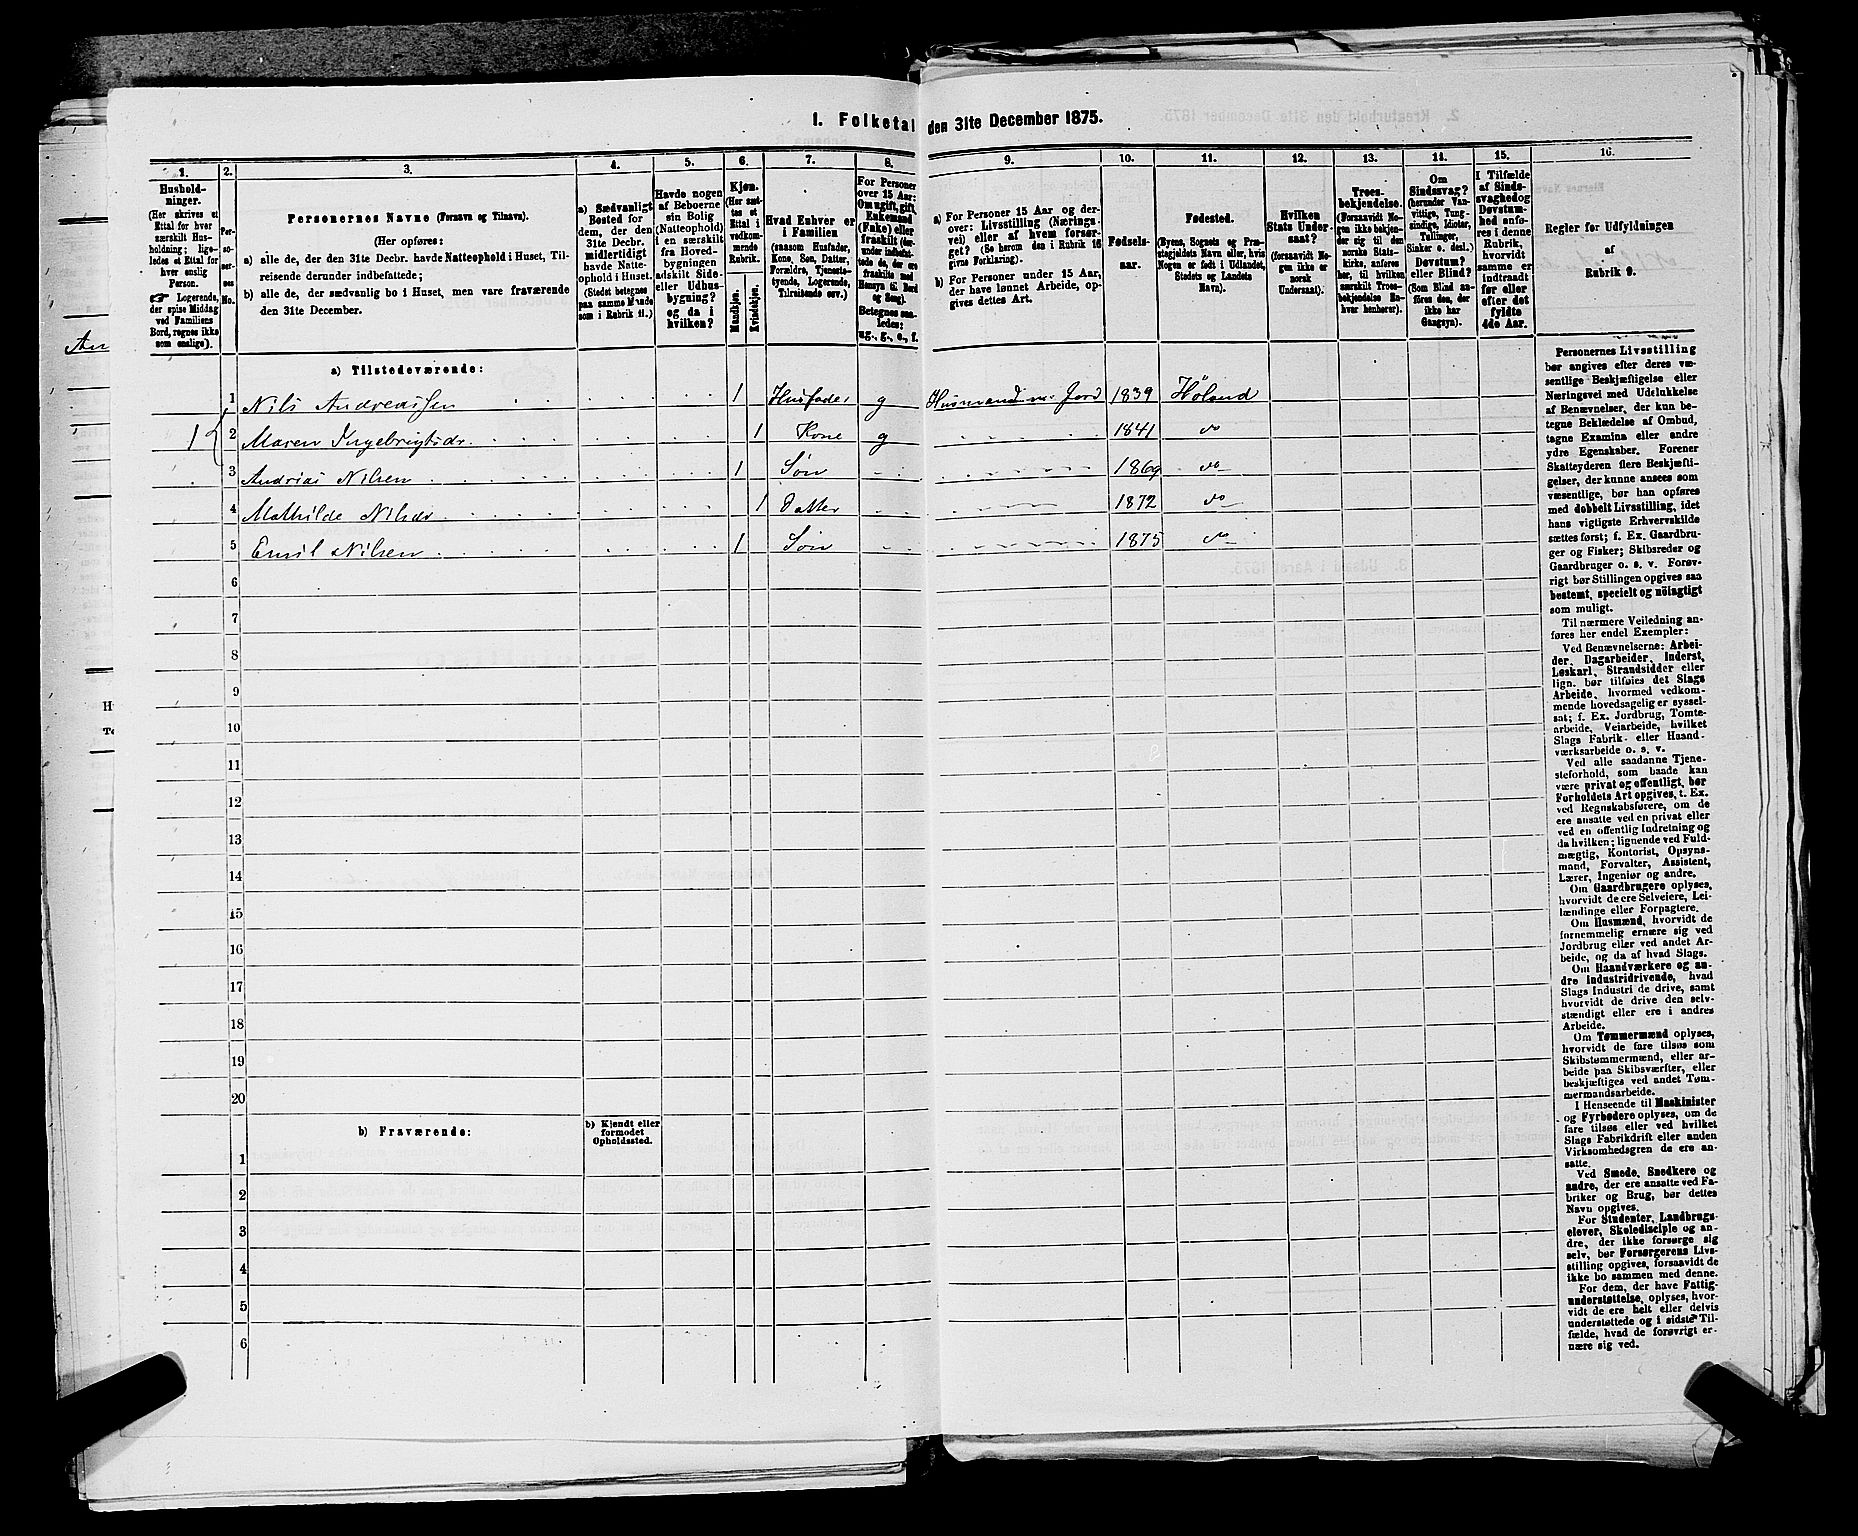 1. Folketal den 31te December 1875.
1.
Hushold-
ninger.
(Her skrives et
Ettal for hver
særskilt Hus-
holdning; lige-
ledes et Ettal for
hver enslig
Person.
☛ Logerende,
der spise Middag
ved Familiens
Bord, regnes ikke
som enslige).
2.
Per-
so-
ner-
nes
No.
3.
Personernes Navne (Fornavn og Tilnavn).
(Her opføres:
a) alle de, der den 31te Decbr. havde Natteophold i Huset, Til-
reisende derunder indbefattede;
b) alle de, der sædvanlig bo i Huset, men vare fraværende
den 31te December.
4.
a) Sædvanligt
Bosted for
dem, der den
31te Decbr.
midlertidigt
havde Natte-
ophold i Huset.
(Stedet betegnes
paa samme Maade
som i Rubrik 11.)
5.
Havde nogen
af Beboerne
sin Bolig
(Natteophold)
i en særskilt
fra Hoved-
bygningen
adskilt Side-
eller Udhus-
bygning?
og da i
hvilken?
6.
Kjøn.
(Her sæt-
tes et
Ettal i
vedkom-
mende
Rubrik.
Mandkjøn.
Kvindekjøn.
7.
Hvad Enhver er
i Familien
(saasom Husfader,
Kone, Søn, Datter,
Forældre, Tjeneste-
tyende, Logerende,
Tilreisende osv.)
8.
For Personer
over 15 Aar:
Om ugift, gift,
Enkemand
(Enke) eller
fraskilt (der-
under indbefat-
tede de, der ere
fraskilte med
Hensyn til Bord
og Seng).
Betegnes saa-
ledes:
ug., g., e., f.
9.
a) For Personer 15 Aar og der-
over: Livsstilling (Nærings-
vei) eller af hvem forsør-
get? (Se herom den i Rubrik 16
givne Forklaring).
b) For Personer under 15 Aar,
der have lønnet Arbeide, op-
gives dettes Art.
10.
Fødsels-
aar.
11.
Fødested.
(Byens, Sognets og Præ-
stegjeldets Navn eller, hvis
Nogen er født i Udlandet,
Stedets og Landets
Navn).
12.
Hvilken
Stats Under-
saat?
(forsaavidt No-
gen ikke er
norsk
Undersaat).
13.
Troes-
bekjendelse.
(Forsaavidt No-
gen ikke bekjen-
der sig til den
norske Stats-
kirke, anføres
her, til hvilken
særskilt Troes-
bekjendelse En-
hver henhører).
14.
Om
Sindssvag?
(herunder Van-
vittige, Tung-
sindige, Idioter,
Tullinger,
Sinker o. desl.)
Døvstum?
eller Blind?
(Som Blind an-
føres den, der
ikke har
Gangsyn).
15.
I Tilfælde
af Sinds-
svaghed og
Døvstum-
hed anfø-
res i denne
Rubrik,
hvorvidt
samme er
indtraadt
før eller
efter det
fyldte
4de Aar.
16.
Regler for Udfyldningen
af
Rubrik 9.
a) Tilstedeværende:
1 Nils Andreassen 1 Husfader g Husmand m. Jord 1839 Høland
1 2 Maren Ingebrigtsdr. 1 Kone g 1841 do
3 Andreas Nilsen 1 Søn 1869 do
4 Mathilde Nilsdr 1 Datter 1872 do
5 Emil Nilsen 1 Søn 1875 do
6
7
8
9
10
11
12
13
14
15
16
17
18
19
20
b) Fraværende:
b) Kjendt eller
formodet
Opholdssted.
1
2
3
4
5
6
Personernes Livsstilling
bør angives efter deres væ-
sentlige Beskjæftigelse eller
Næringsvei med Udelukkelse
af Benævnelser, der kun be-
tegne Beklædelse af Ombud,
tagne Examina eller andre
ydre Egenskaber. Forener
Skatteyderen flere Beskjæfti-
gelser, der kunne ansees som
væsentlige, bør han opføres
med dobbelt Livsstilling, idet
hans vigtigste Erhvervskilde
sættes først; f. Ex. Gaardbru-
ger og Fisker; Skibsreder og
Gaardbruger o. s. v. Forøv-
rigt bør Stillingen opgives saa
bestemt, specielt og nöiagtigt
som muligt.
Til nærmere Veiledning an-
føres her endel Exempler:
Ved Benævnelserne: Arbei-
der, Dagarbeider, Inderst,
Løskarl, Strandsidder eller
lign. bør tilføies det Slags
Arbeide, hvormed vedkom-
mende hovedsagelig er syssel-
sat; f. Ex. Jordbrug, Tomte-
arbeide, Veiarbeide, hvilket
Slags Fabrik- eller Haand-
værksarbeide o. s. v.
Ved alle saadanne Tjene-
steforhold, som baade kan
være privat og offentligt, bør
Forholdets Art opgives, t. Ex.
ved Regnskabsførere, om de
ere ansatte ved en privat eller
ved en offentlig Indretning og
da hvilken; lignende ved Fuld-
mægtig, Kontorist, Opsyns-
mand, Forvalter, Assistent,
Lærer, Ingeniør og andre.
Om Gaardbrugere oplyses,
hvorvidt de ere Selveiere, Lei-
lændinge eller Forpagtere.
Om Husmænd, hvorvidt de
fornemmelig ernære sig ved
Jordbrug eller ved andet Ar-
beide, og da af hvad Slags.
Om Haandværkere og an-
dre Industridrivende, hvad
Slags Industri de drive, samt
hvorvidt de drive den selv-
stændigt eller ere i andres
Arbeide.
Om Tømmermænd oplyses,
hvorvidt de fare tilsøs som
Skibstømmermænd, eller ar-
beide paa Skibsværfter, eller
beskjæftiges ved andet Tøm-
mermandsarbeide.
I Henseende til Maskinister
og Fyrbødere oplyses, om de
fare tilsøs eller ved hvilket
Slags Fabrikdrift eller anden
Virksomhedsgren de ere an-
satte.
Ved Smede, Snedkere og
andre, der ere ansatte ved Fa-
briker og Brug, bør dettes
Navn opgives.
For Studenter, Landbrugs-
elever, Skoledisciple og an-
dre, der ikke forsørge sig
selv, bør Forsørgerens Livs-
stilling opgives, forsaavidt de
ikke bo sammen med denne.
For dem, der have Fattig-
understøttelse, oplyses, hvor-
vidt de ere helt eller delvis
understøttede og i sidste Til-
fælde, hvad de forøvrigt er-
nære sig ved.